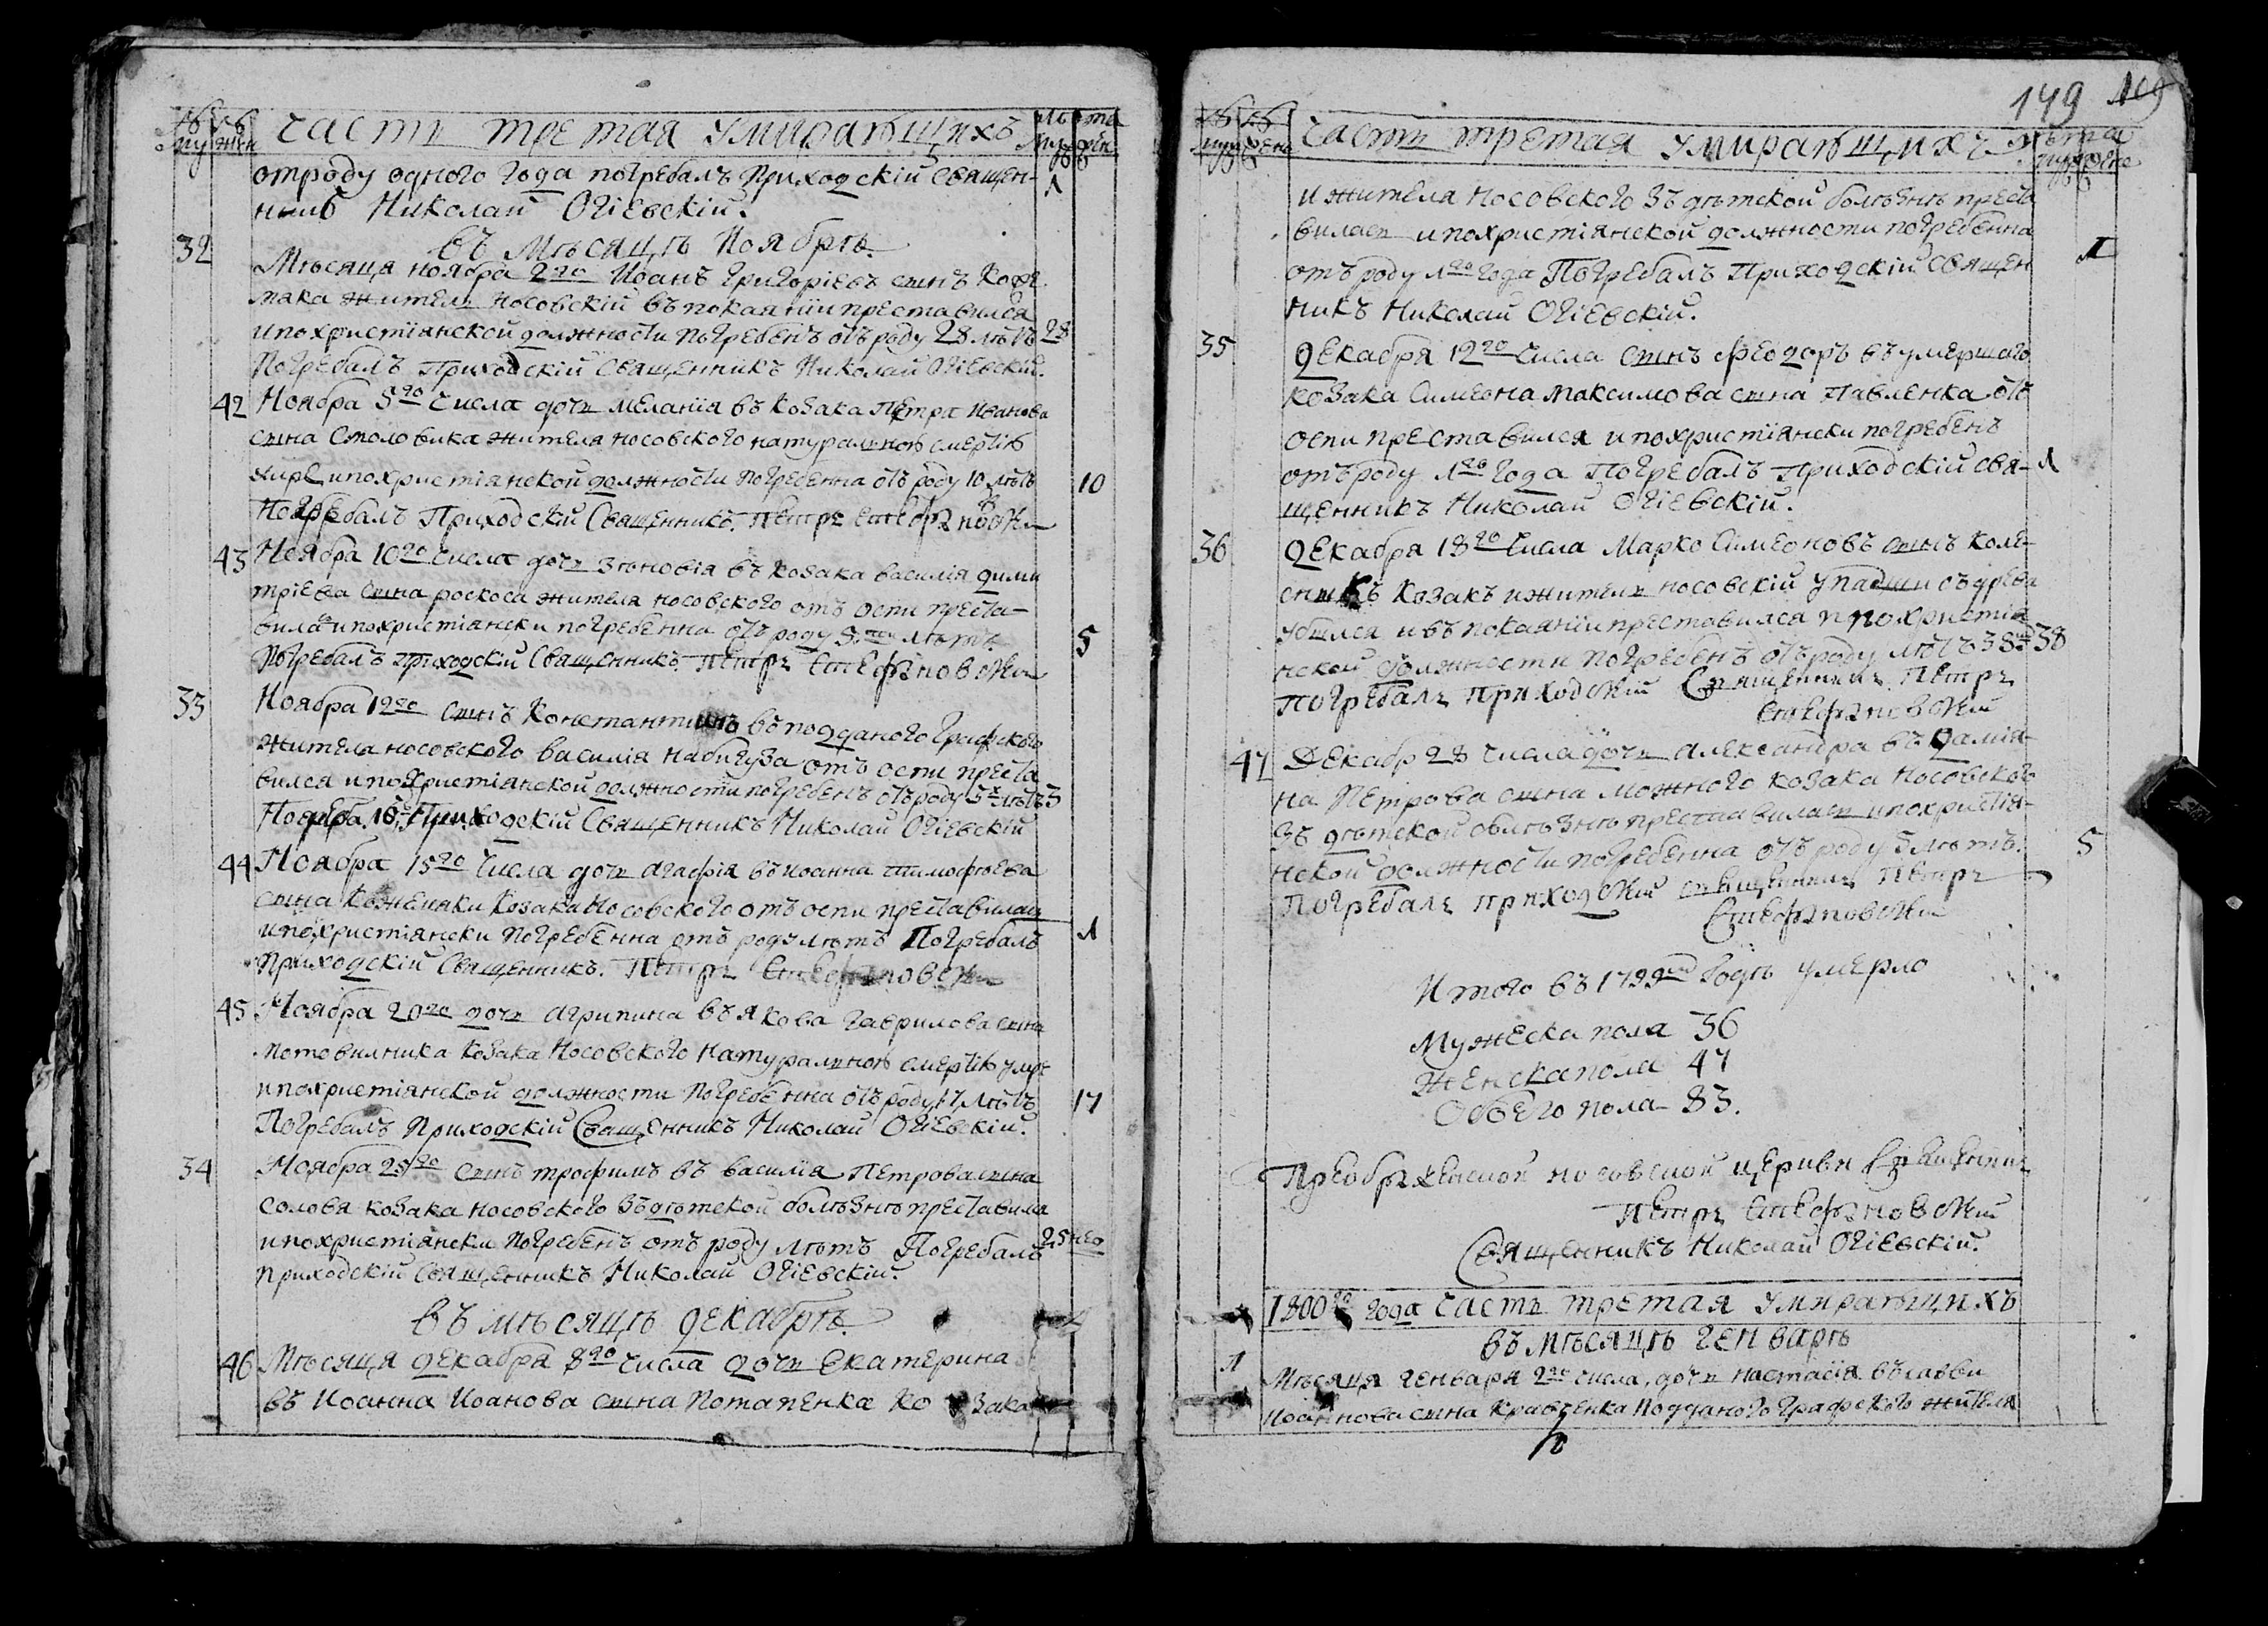 Часть третая умирающихъ
отроду одного года погребалъ Приходскій Священ-
никъ Николай Огіевскій.
въ Мѣсяцѣ Ноябрѣ.
32
Мѣсяца ноября 2го Иоанъ Григоріевъ сынъ Коже
мяка житель носовскій въ покаяніи преставился
и похристіянской должности погребенъ отъ роду 28 лѣтъ 28
Погребалъ Приходскій Священникъ Николай Огіевскій.
42 Ноября 5го числа дочь Меланія въ козака Петра Иванова
сына Столовика жителя носовского натуралною смертію
умре и похристіянской должности погребенна отъ роду 10 лѣтъ 10
Погребалъ Приходскій Священникъ. Петръ Стефановскій
43 Ноября 10го числа дочь Зѣновія въ козака василія дими
тріева сына роскоса жителя носовского отъ оспи преста-
вилась и похристіянски погребенна отъ роду 5 лѣтъ 5
Погребалъ Приходскій Священникъ Петръ Стефановскій
33 Ноября 12го сынъ Константинъ въ подданого Графского
жителя носовского василія набигуза отъ оспи преста
вился и похристіянской должности погребенъ отъ роду 3х лѣтъ 3
Погребалъ Приходскій Священникъ Николай Огіевскій
44 Ноября 15го числа дочь Агафія въ иоанна тимофѣева
сына Кожемяки Козака Носовского отъ оспи преставилась
и похристіянски погребенна отъ роду лѣтъ Погребалъ 1
Приходскій Священникъ. Петръ Стефановскій
45 Ноября 20го дочь Агрипина въ Якова Гаврилова сына
Потовилника козака Носовского натуралною смертію умре
и похристіянской должности погребенна отъ роду 17 лѣтъ 17
Погребалъ Приходскій Священникъ Николай Огіевскій.
34 Ноября 25го сынъ трофимъ въ василія Петрова сына
соловя козака носовского въ дѣтской болѣзнѣ преставился
и похристіянски погребенъ отъ роду лѣтъ Погребалъ
Приходскій Священникъ Николай Огіевскій.
въ мѣсяцѣ декабрѣ.
46 Мѣсяца декабря 8го числа дочь Екатерина
въ Иоанна Иоанова сына Потапенка козака
149 109
Часть третая умирающихъ лѣта
и жителя носовского въ дѣтской болѣзнѣ преста
вилась и похристіянской должности погребенна
отъ роду 1го года Погребалъ Приходскій Священ 1
никъ Николай Огіевскій.
35 декабря 12го числа сынъ Феодоръ въ умершаго
козака Симеона Максимова сына Павленка отъ
оспи преставился и похристіянски погребенъ
отъ роду 1го года Погребалъ Приходскій Свя- 1
щенникъ Николай Огіевскій.
36 декабря 18го числа Марко Симеоновъ сынъ Коле-
сникъ Козакъ и житель носовскій упадши съ древа
убился и въ покаяніи преставился и похристія
нской должности погребенъ отъ роду лѣтъ 38 38
Погребалъ Приходскій Священникъ Петръ
Стефановскій
47 Декабр 28 числа дочь Александра въ Дамія-
на Петрова сына можного козака Носовского
въ дѣтской болѣзнѣ преставилась и похристія-
нской должности погребенна отъ роду 5 лѣтъ. 5
Погребалъ Приходскій Священникъ Петръ
Стефановскій
Итого въ 1799 годѣ умерло
Мужеска пола 36
Женска пола 47
Обоего пола - 83.
Преображенской носовской церкви Священникъ
Петръ Стефановскій
Священникъ Николай Огіевскій.
1800го года Часть третая умирающихъ
въ мѣсяцѣ Генварѣ
1 Мѣсяца Генваря 2го числа, дочь настасія въ савви
Иоаннова сына Кравченка подданого графского жителя